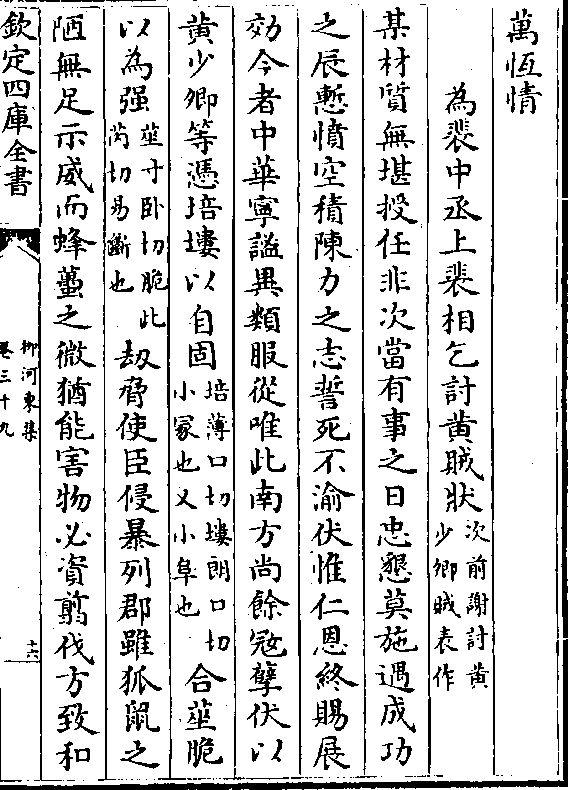 萬恆情
為裴中丞上裴相乞討黃賊狀次前謝討黃少卿賊表作
某材質無堪授任非次當有事之日忠懇莫施遇成功
之辰慙憤空積陳力之志誓死不渝伏惟仁恩終賜展
効今者中華寧謐異類服從唯此南方尚餘㓂孽伏以
黃少卿等憑培塿以自固培薄口切塿朗口切小冢也又小阜也合莝脆
以為强莝寸卧切脆此芮切易斷也刼脅使臣侵暴列郡雖狐鼠之
陋無足示威而蜂蠆之微猶能害物必資翦伐方致和
欽定四庫全書
柳河東集
卷三十九
十六